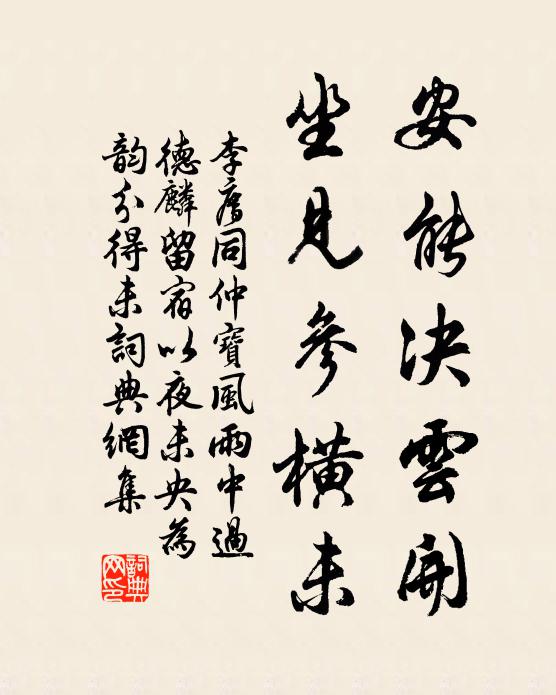 安能決雲開
坐見參橫未
李廌同仲寶風雨中過
德麟留宿以夜未央為
韵分得未詞典網集
詞典网印